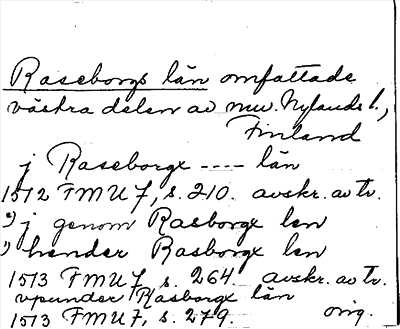 Raseborgs län omfattade
västra delen av nuv. Nylands l.,
Finland
j Raseborgx ---- län
1512 FMU 7, s. 210. avskr. av tr.
j genom Rasborgx len
hender Rasborgx len
1513 FMU 7, s. 264. avskr. av tr.
vpunder Rasborgx län
1513 FMU 7, s. 279. orig.